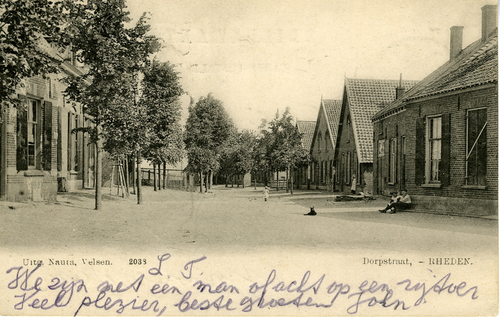 Uitg. Nauta, Velsen. 2038
Dorpstraat, - RHEDEN.
L. T.
We zijn met een man of acht op een rijtoer
Veel plezier, beste groeten John.